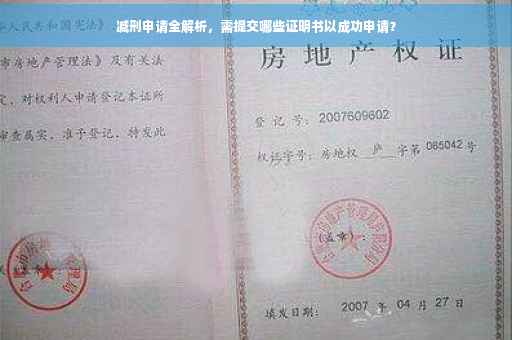 减刑申请全解析，需提交哪些证明书以成功申请？
人民共和国宪法》及
市房地产管理法》及有关法
定，对权利人申请登记本证所
审查属实，准予登记，特发此
房地产权证
登 记 号：2007609602
权证字号：房地权 庐 字第 065042 号
(盖章)：
填发日期：2007 年 04 月 27 日